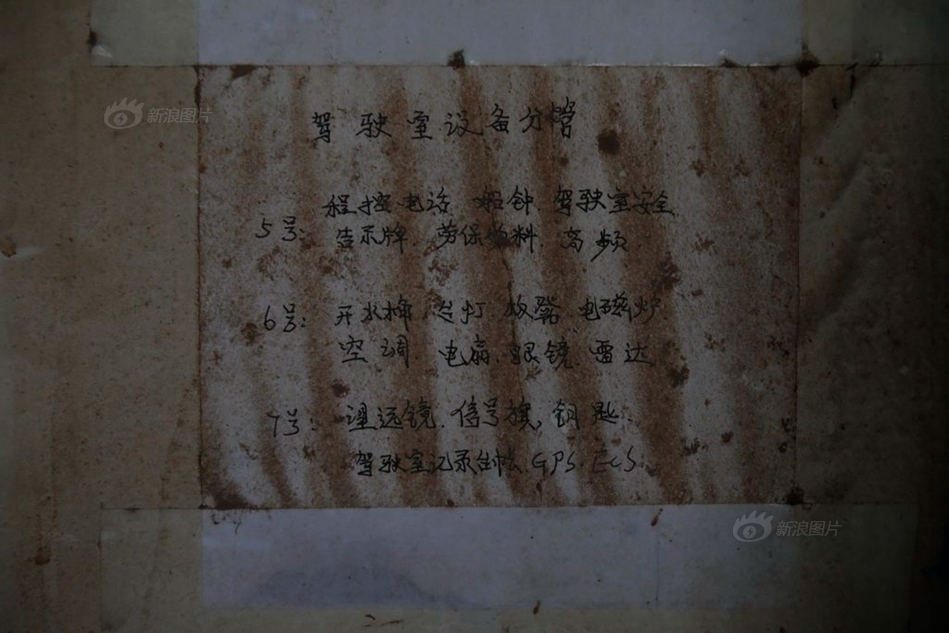 新浪图片
驾驶室设备分管
5号: 程控电话 船钟. 驾驶室安全
告示牌. 劳保物料 高频
6号: 开水 电磁炉
空调 电扇. 眼镜. 雷达
7号: 望远镜. 信号旗, 钥匙.
驾驶室记录 GPS. ECS.
新浪图片